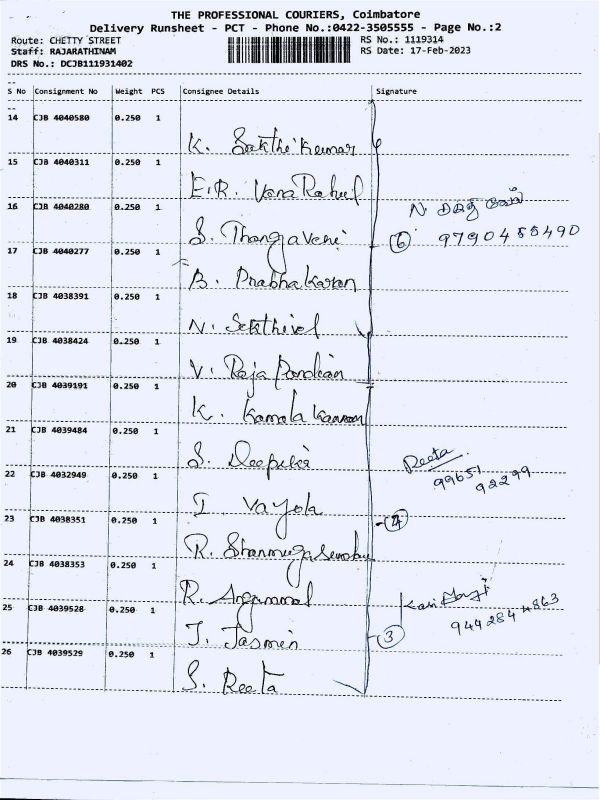 THE PROFESSIONAL COURIERS, Coimbatore
Delivery Runsheet - PCT - Phone No.:0422-3505555 - Page No.:2
Route: CHETTY STREET
RS No.: 1119314
Staff: RAJARATHINAM
RS Date: 17-Feb-2023
DRS No.: DCJB111931402
S No Consignment No Weight PCS Consignee Details Signature
14 CJB 4040580 0.250 1
K. Sakthi Kumar
15 CJB 4040311 0.250 1
E.R. Vana Rahul
16 CJB 4040280 0.250 1
S. Thangaveni
N.
6 9790455490
17 CJB 4040277 0.250 1
B. Prabha Karan
18 CJB 4038391 0.250 1
N. Sakthivel
19 CJB 4038424 0.250 1
V. Raja Pandian
20 CJB 4039191 0.250 1
K. Kamala Kannan
21 CJB 4039484 0.250 1
S. Deepika
Reeta
99651
92299
22 CJB 4032949 0.250 1
I Vayola
4
23 CJB 4038351 0.250 1
R.
24 CJB 4038353 0.250 1
R. Angammal
25 CJB 4039528 0.250 1
J. Jasmin
3 9442844863
26 CJB 4039529 0.250 1
S. Reeta